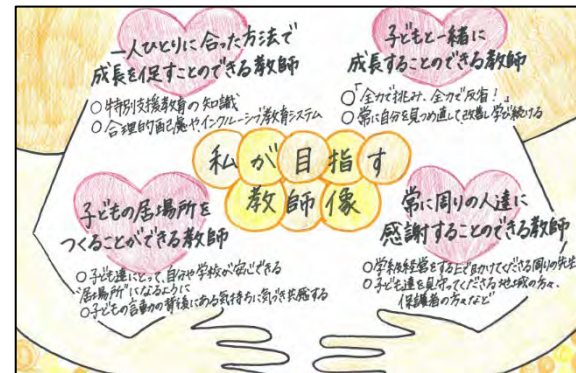 一人ひとりに合った方法で
成長を促すことのできる教師
○特別支援教育の知識
○合理的配慮やインクルーシブ教育システム
子どもと一緒に
成長することのできる教師
○「全力で挑み、全力で反省！」
○常に自分を見つめ直して改善し学び続ける
私が目指す
教師像
子どもの居場所を
つくることができる教師
○子ども達にとって、自分や学校が安心できる
"居場所"になるように
○子どもの言動の背後にある気持ちに気づき共感する
常に周りの人達に
感謝することのできる教師
○学級経営をする上で助けてくださる周りの先生
○子ども達を見守ってくださる地域の方々、
保護者の方々など